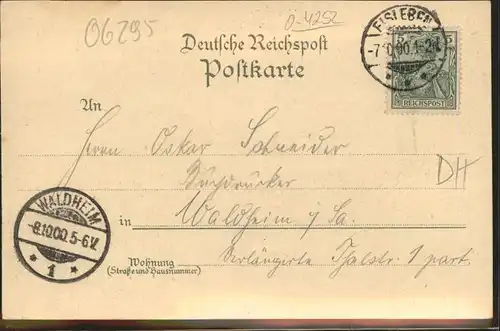 06295
0-4252
EISLEBEN
-7.10.00.1-2N.
5
5
REICHSPOST
Deutsche Reichspost
Postkarte
An
Herrn Oskar Schneider
Buchdrucker
DH
in Waldheim i/Sa.
WALDHEIM
-8.10.00.5-6V.
* 1 *
Wohnung
(Straße und Hausnummer)
Verlängerte Thalstr. 1 part.